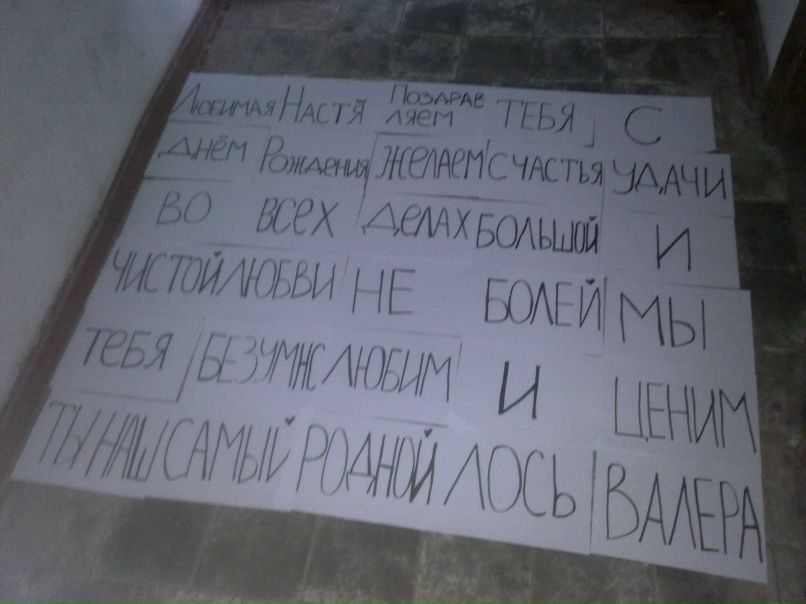 Любимая Настя Поздравляем ТЕБЯ С
Днём Рождения ЖЕЛАЕМ СЧАСТЬЯ УДАЧИ
ВО ВСЕХ ДЕЛАХ БОЛЬШОЙ И
ЧИСТОЙ ЛЮБВИ НЕ БОЛЕЙ МЫ
ТЕБЯ БЕЗУМНО ЛЮБИМ И ЦЕНИМ
ТЫ НАШ САМЫЙ РОДНОЙ ЛОСЬ ВАЛЕРА